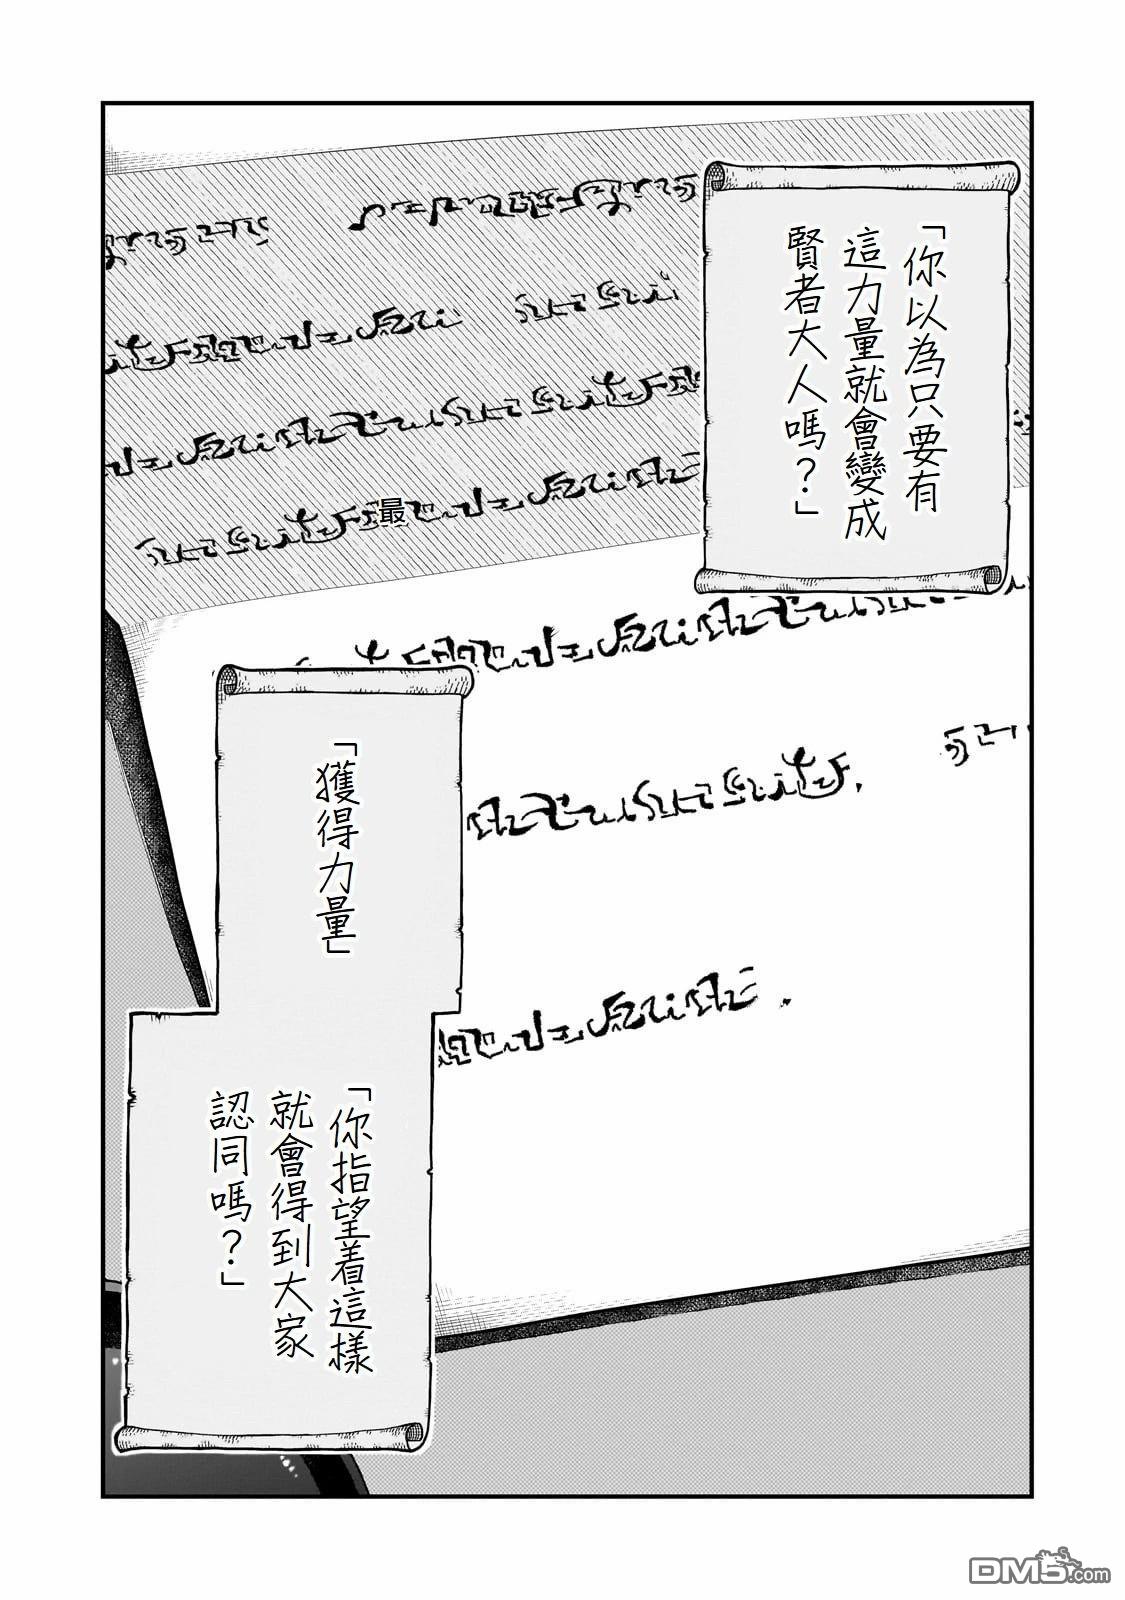 「你以為只要有
這力量就會變成
賢者大人嗎？」
最
「獲得力量」
「你指望着這樣
就會得到大家
認同嗎？」
DM5.com